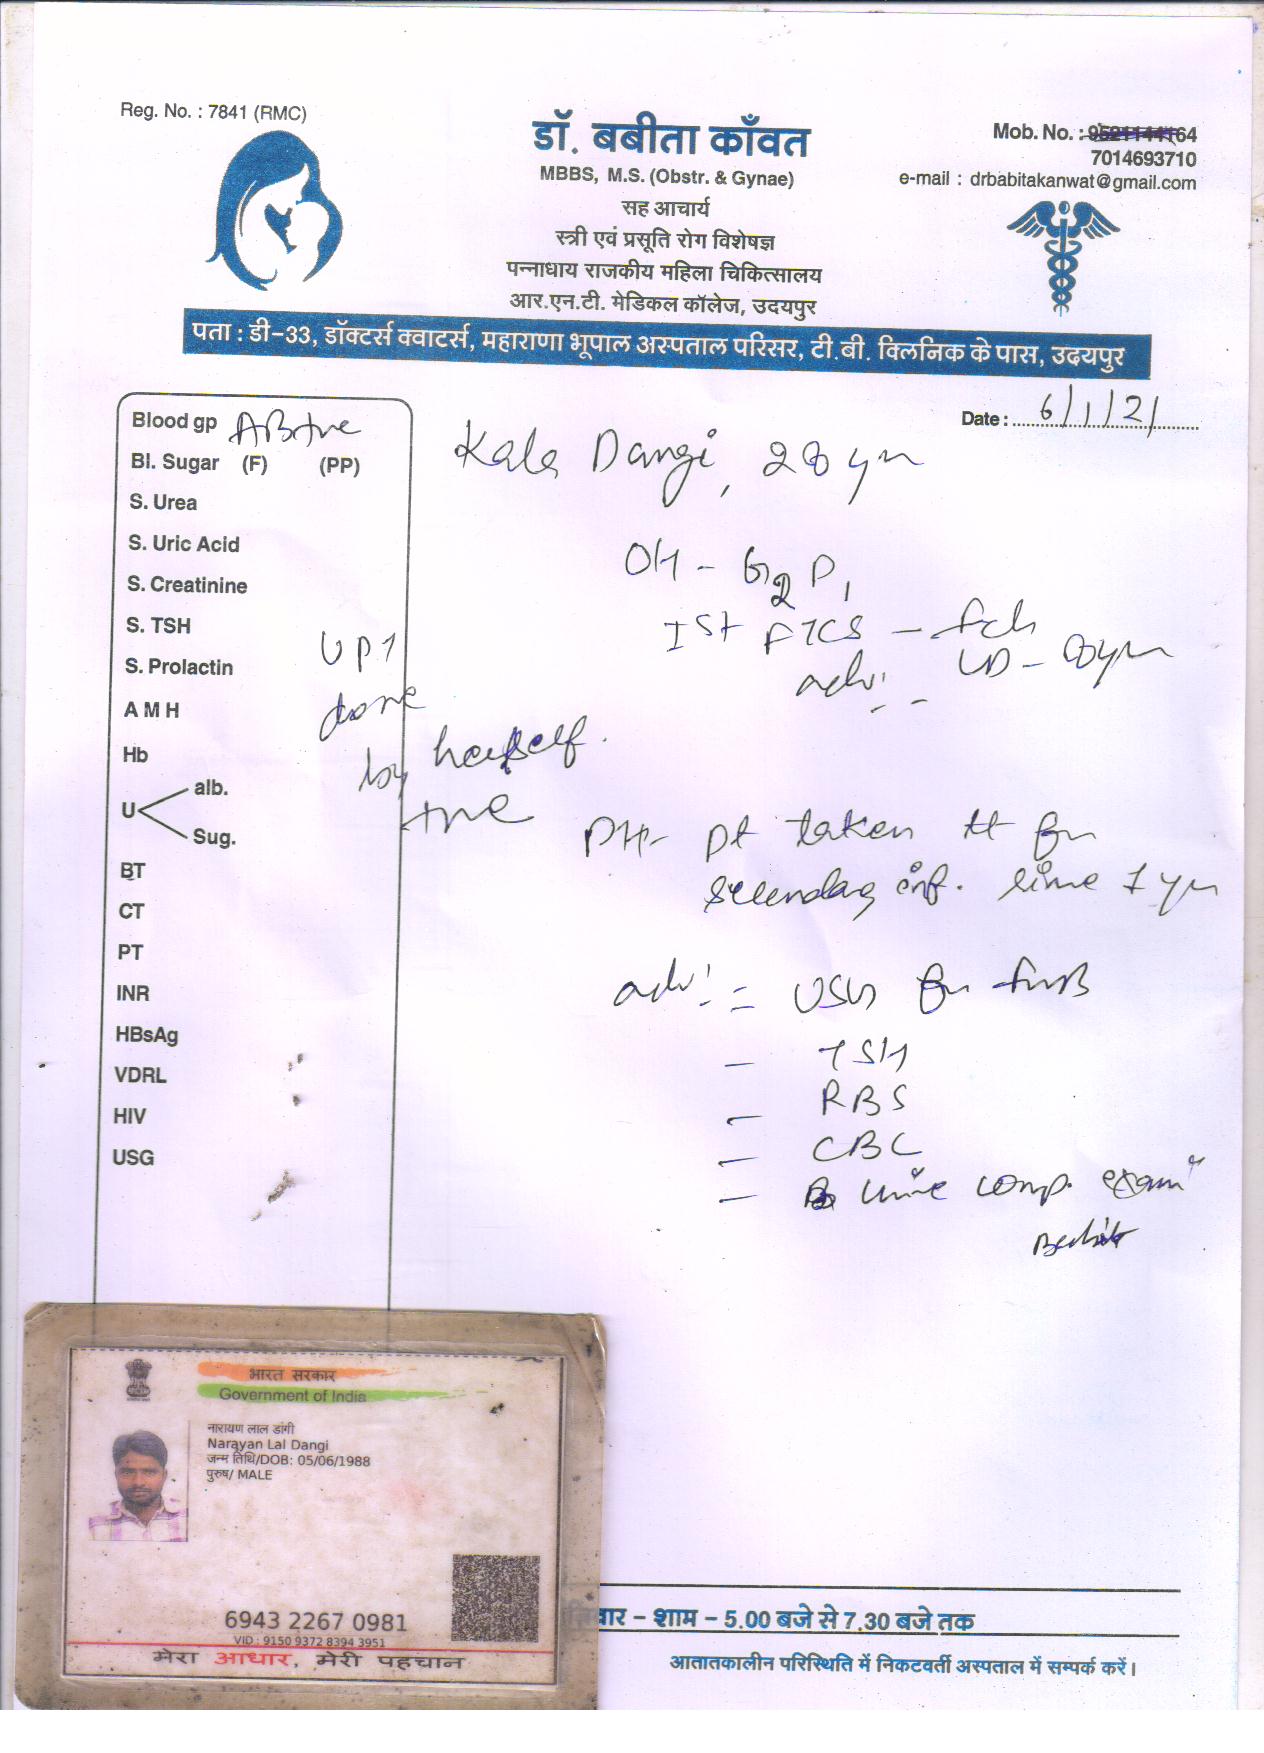 Reg. No. : 7841 (RMC)
डॉ. बबीता काँवत
MBBS, M.S. (Obstr. & Gynae)
सह आचार्य
स्त्री एवं प्रसूति रोग विशेषज्ञ
पन्नाधाय राजकीय महिला चिकित्सालय
आर.एन.टी. मेडिकल कॉलेज, उदयपुर
Mob. No. : 9521144164
7014693710
e-mail : drbabitakanwat@gmail.com
पता : डी-33, डॉक्टर्स क्वाटर्स, महाराणा भूपाल अस्पताल परिसर, टी.बी. क्लिनिक के पास, उदयपुर
Date : 6/1/21
Blood gp AB+ve
Bl. Sugar (F) (PP)
S. Urea
S. Uric Acid
S. Creatinine
S. TSH
S. Prolactin
A M H
Hb
U alb.
Sug.
BT
CT
PT
INR
HBsAg
VDRL
HIV
USG
UPT
done
by herself.
+ve
Kala Dangi, 28 yr
OH - G2 P1
Ist FTCS - fch
adv: LD - 8yr
PH- pt taken tt for
secondary inf. since 1 yr
adv: = USG for
- TSH
- RBS
- CBC
- urine comp. exam
भारत सरकार
Government of India
नारायण लाल डांगी
Narayan Lal Dangi
जन्म तिथि/DOB: 05/06/1988
पुरुष/ MALE
6943 2267 0981
VID : 9150 9372 8394 3951
मेरा आधार, मेरी पहचान
वार – शाम – 5.00 बजे से 7.30 बजे तक
आतातकालीन परिस्थिति में निकटवर्ती अस्पताल में सम्पर्क करें।